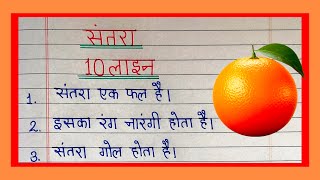 संतरा
10 लाइन
1. संतरा एक फल है।
2. इसका रंग नारंगी होता है।
3. संतरा गोल होता है।